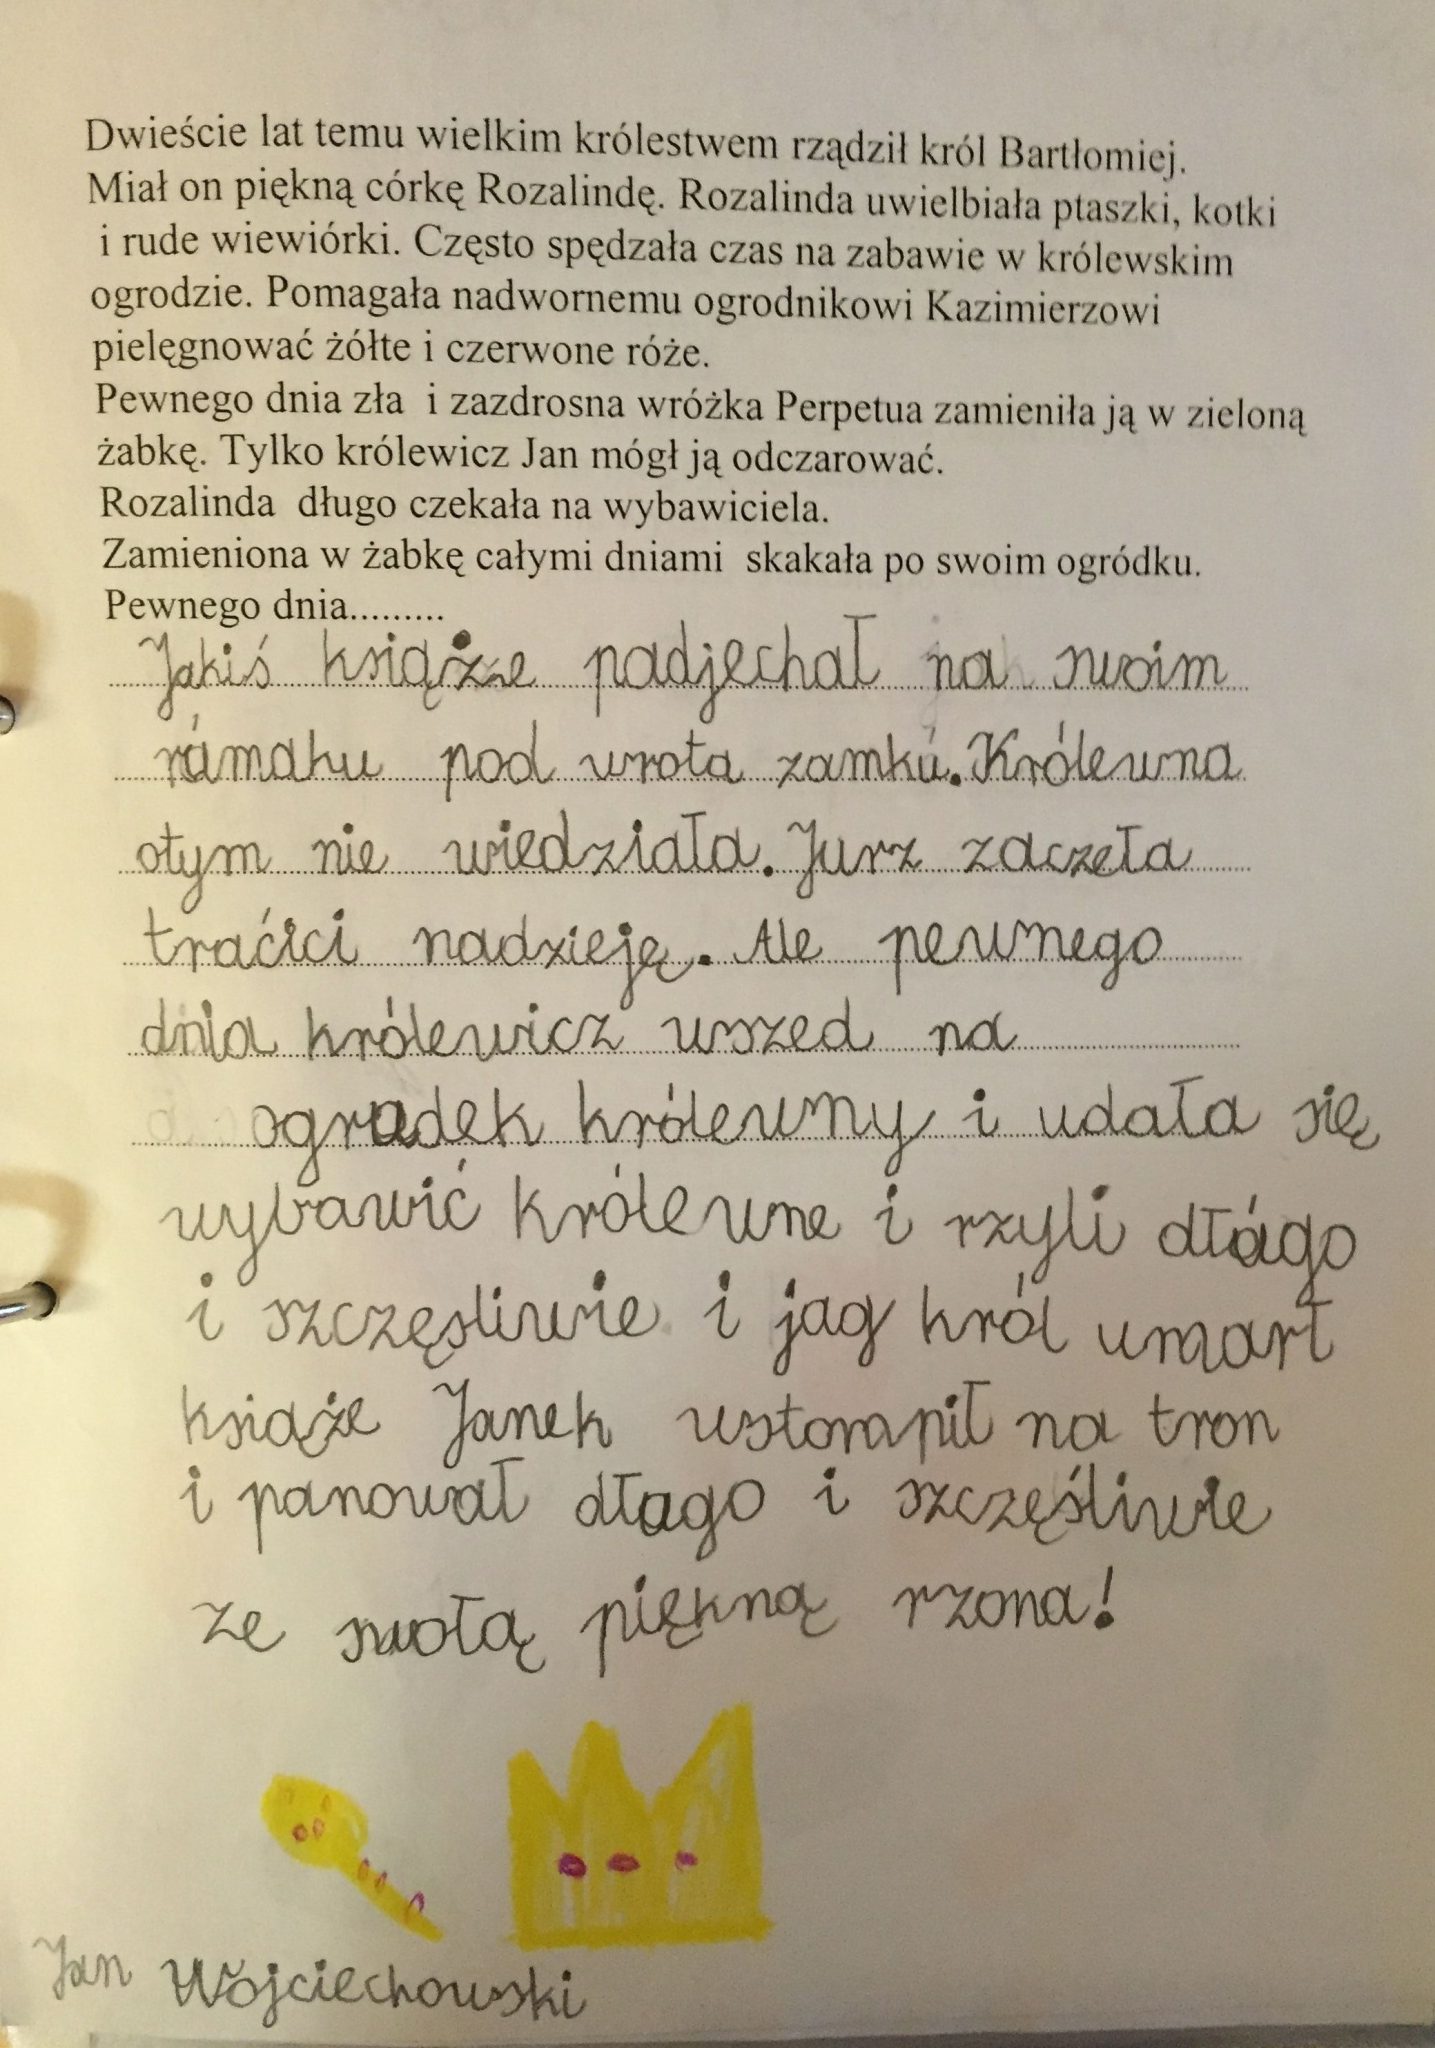 Dwieście lat temu wielkim królestwem rządził król Bartłomiej.
Miał on piękną córkę Rozalindę. Rozalinda uwielbiała ptaszki, kotki
i rude wiewiórki. Często spędzała czas na zabawie w królewskim
ogrodzie. Pomagała nadwornemu ogrodnikowi Kazimierzowi
pielęgnować żółte i czerwone róże.
Pewnego dnia zła i zazdrosna wróżka Perpetua zamieniła ją w zieloną
żabkę. Tylko królewicz Jan mógł ją odczarować.
Rozalinda długo czekała na wybawiciela.
Zamieniona w żabkę całymi dniami skakała po swoim ogródku.
Pewnego dnia.........
Jakiś książe padjechał na swoim
rámaku pod wrota zamku. Królewna
otym nie wiedziała. Jurz zaczeła
traćici nadzieję. Ale pewnego
dnia królewicz wszed na
ogradek królewny i udała się
wybawić królewne i rzyli dłágo
i szczęsliwie i jag król umarł
ksiąźe Janek wstompił na tron
i panował dłago i szczęśliwie
ze swołą piękną rzona!
Jan Wójciechowski